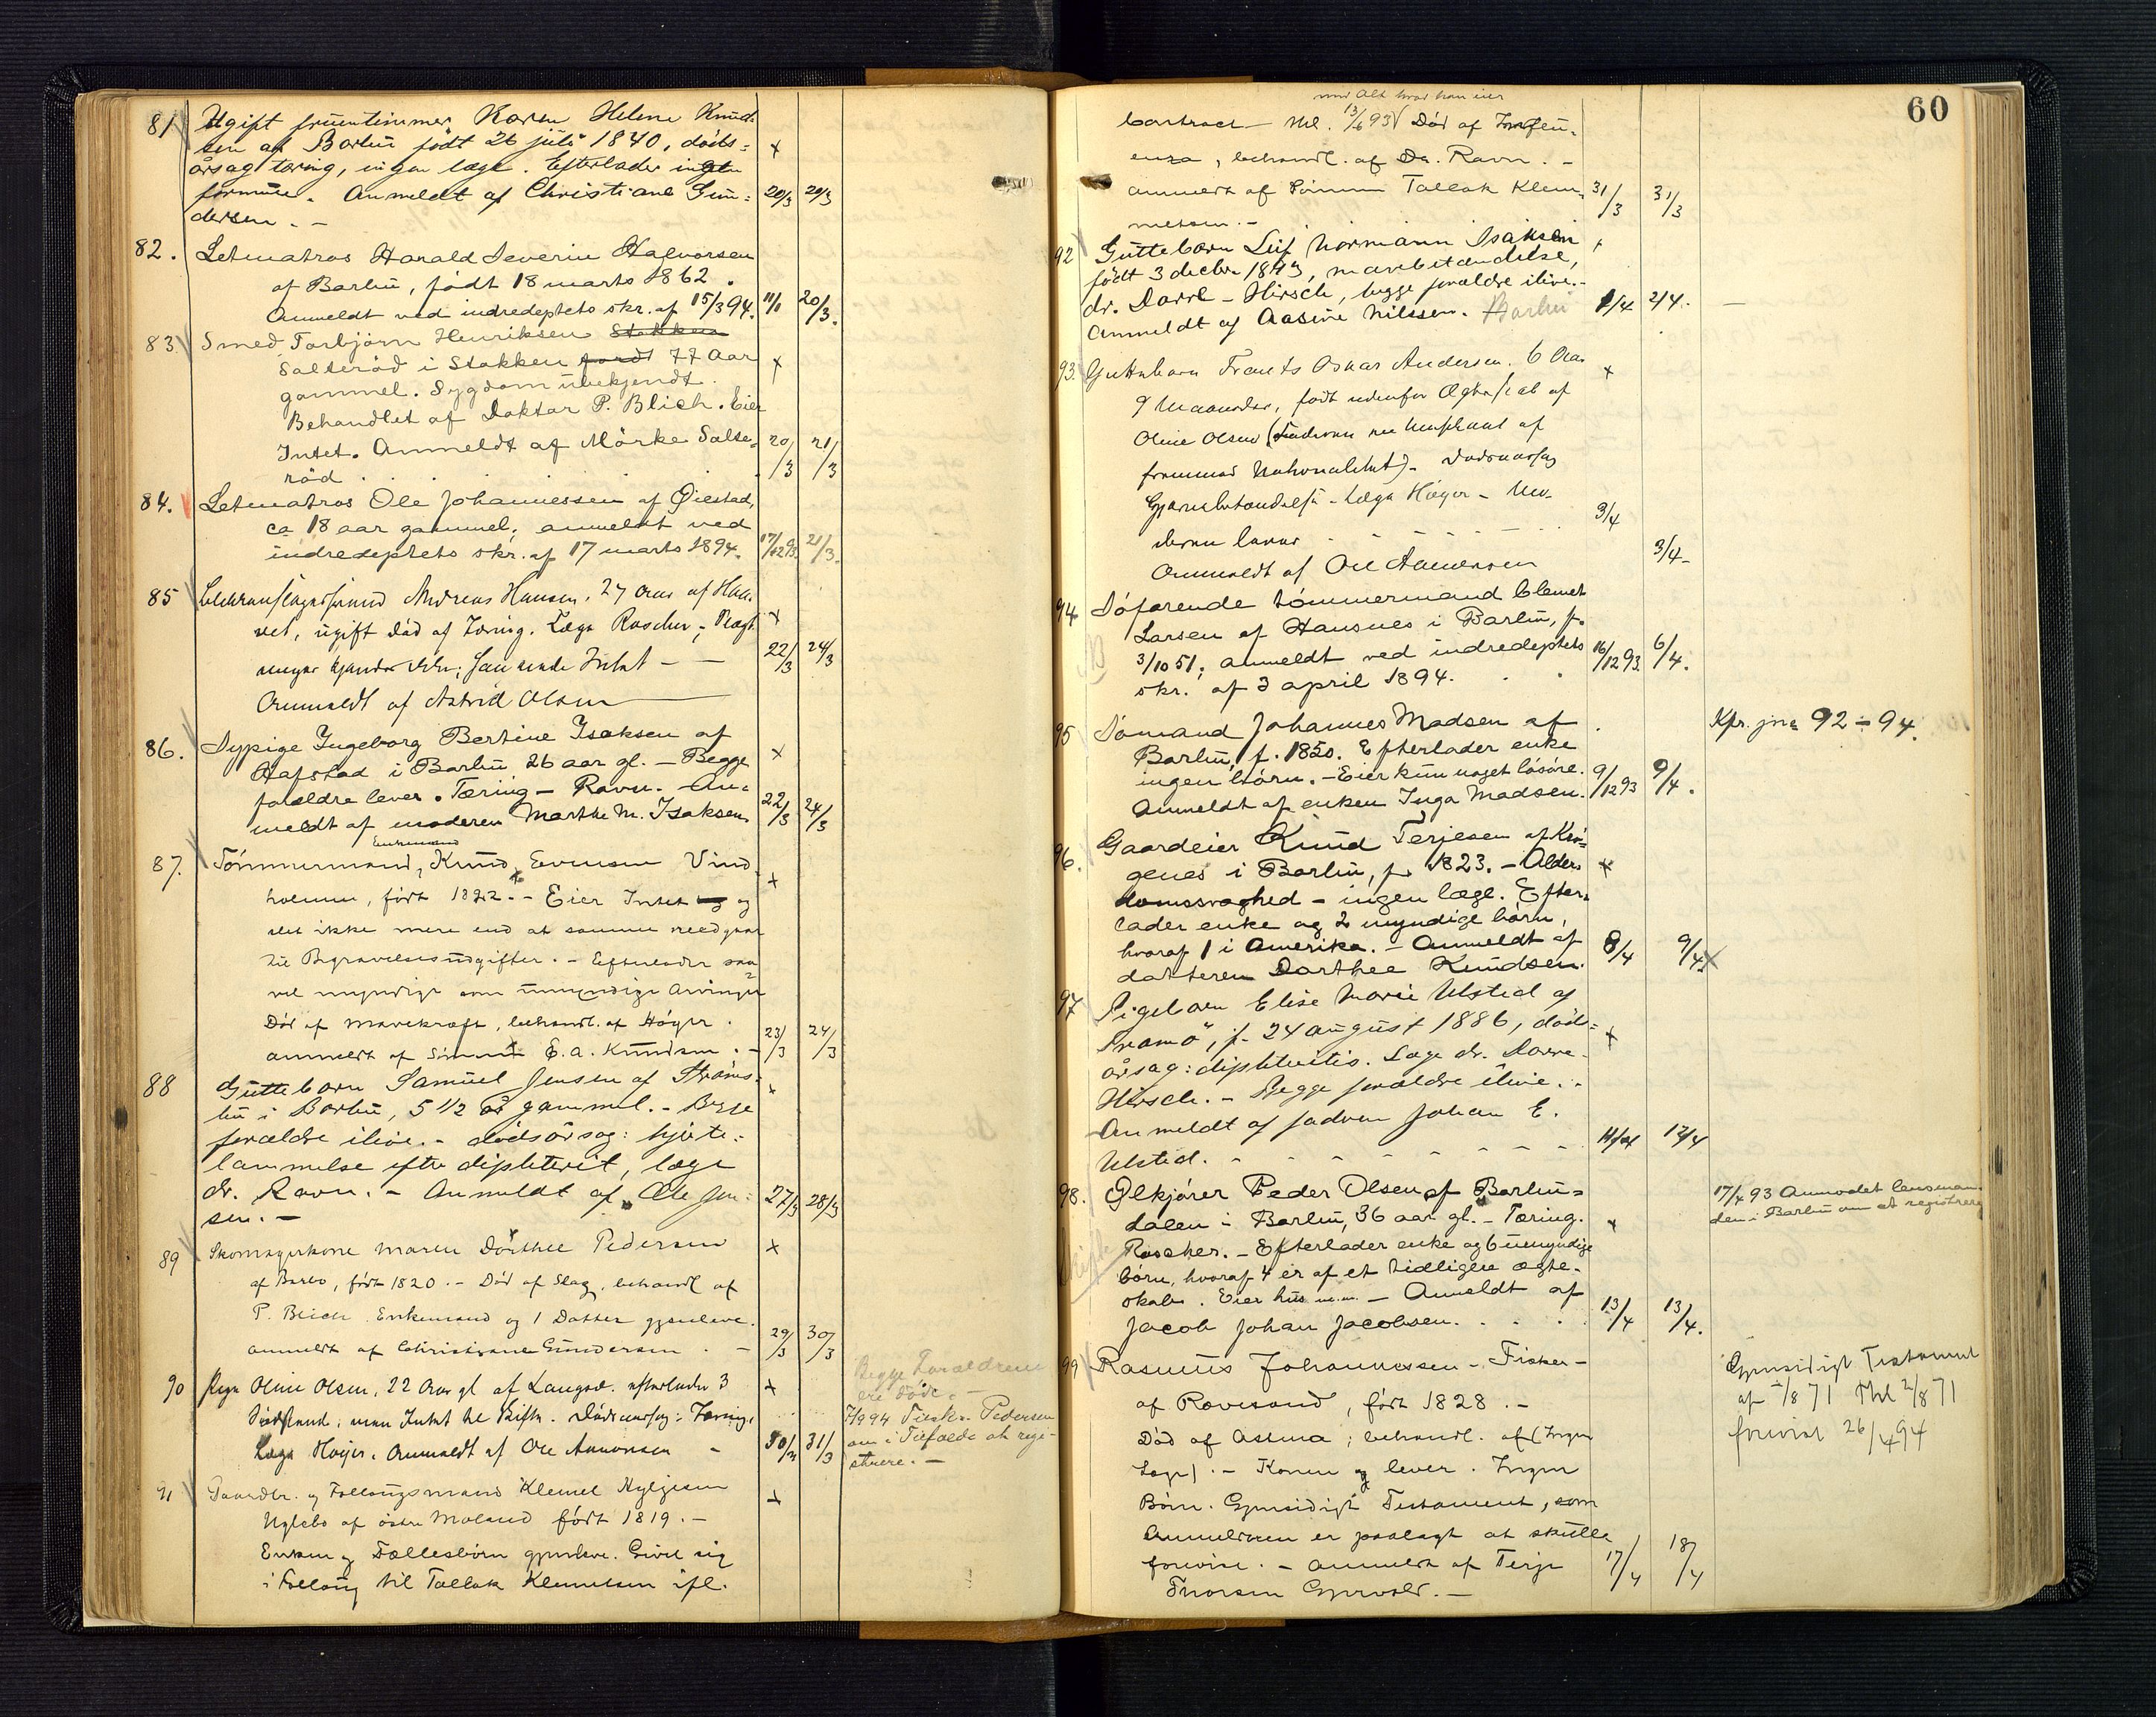 81 Ugift fruentimmer Karen Helene Knud-
sen af Barbu født 26 juli 1840, døds- x
årsag tæring, ingen læge. Efterlader ingen
formue. Anmeldt af Christiane Gun- 20/3 20/3
dersen. -
82. Letmatros Harald Severin Halvorsen
af Barbu, født 18 marts 1862.
Anmeldt ved indredeptets skr. af 15/3 94. 11/1 20/3.
83. Smed Torbjørn Henriksen Stokken
Salterød i Stokken født 77 Aar x
gammel. Sygdom ubekjendt.
Behandlet af Doktor P. Blich. Eier
Intet. Anmeldt af Mørke Salte- 20/3 21/3
rød . . .
84. Letmatros Ole Johannessen af Øiestad,
ca 18 aar gammel; anmeldt ved
indredeptets skr. af 17 marts 1894. 17/12 93. 21/3.
85 Andreas Hansen, 27 Aar af
ugift død af Tæring. Læge Roscher; x
22/3 24/3
Anmeldt af Astrid Olsen
86. Sypige Ingeborg Bertine Isaksen af
Hafstad i Barbu 26 aar gl. - Begge x
forældre lever. Tæring - Ravn. An-
meldt af moderen Marthe M. Isaksen 22/3 24/3
Enkemand
87. Tømmermand, Knud Evensen Vind-
holmen, født 1822. - Eier Intet og og x
det ikke mere end at samme medgaar
til Begravelsesudgifter. - Efterlader saa-
vel myndige som umyndige Arvinger
Død af Mavekræft, behandl. af Høyer.
anmeldt af Sønnen E. A. Knudsen. - 23/3 24/3
88 Guttebarn Samuel Jensen af Strøms-
bu i Barbu, 5 1/2 år gammel. - Begge x
forældre ilive. - dødsårsag: hjerte-
lammelse efter difterit, læge
dr. Ravn. - Anmeldt af Ole Jen- 27/3 28/3
sen. -
89 Skomagerkone Maren Dorthee Pedersen x
af Barbo, født 1820. - Død af Slag, behandl af
P. Blich. Enkemand og 1 Datter gjenleve.
anmeldt af Christiane Gundersen . - 29/3 30/3
90 Pige Oline Olsen, 22 Aar gl af Langsæ. efterlader 3 x
Sødskend, men Intet til Skifte. Dødsaarsag: Tæring,
Læge Høyer. Anmeldt af Ole Aanonsen - 30/3 31/3
Begge Forældrene
ere døde. -
Pedersen
om i Tilfælde at regi-
strere. -
91 Gaardbr. og Føllaugsmand Klemet
Uglebo af østre Moland født 1819. - x
Enken og Fællesbørn gjenleve. Givet sig
i Føllaug til Tallak Klemetsen ifl.
60
med Alt hvad han eier
Contract thl. 13/6 93 Død af Influ-
enza, behandl. af Dr. Ravn. -
anmeldt af Sønnen Tallak Klem- 31/3 31/3
metsen. -
92 Guttebarn Leif Normann Isaksen x
født 3 decbr. 1893, mavebetændelse,
dr. Dorre-Hirsch, begge forældre ilive. -
Anmeldt af Aasine Nilssen. Barbu 1/4 2/4. -
93. Guttebarn Frants Oskar Andersen 6 Aar x
9 Maaneder, født udenfor Ægteskab af
Oline Olsen (Faderen
fremmed Nationalitet) - Dødsaarsag
Hjernebetændelse - Læge Høyer - Mo-
deren lever - - - 3/4
Anmeldt af Ole Aanonsen 3/4 -
94 Søfarende tømmermand Clemet
Larsen af Hausnes i Barbu, f.
3/10 51; anmeldt ved indredeptets 16/12 93 6/4.
skr. af 3 april 1894.
95 Sømand Johannes Madsen af Kfr. jno 92 - 94.
Barbu, f. 1850. Efterlader enke
ingen børn. - Eier kun noget løsøre.
Anmeldt af enken Inga Madsen. 9/12 93 9/4.
96. Gaardeier Knud Terjesen af Krø-
genes i Barbu, f. 1823. - Alder- x
domssvaghed - ingen læge. Efter-
lader enke og 2 myndige børn,
hvoraf 1 i Amerika. - Anmeldt af 8/4 9/4 x
datteren Dorthee Knudsen.
97 Pigebarn Elise Marie Ulsted af
Tromø, f. 24 august 1886, døds- x
årsag: difteritis. Læge dr. Dorre-
Hirsch. - Begge forældre ilive. -
Anmeldt af faderen Johan E.
Ulsted. - - - - - - 11/4 12/4
98. Ølkjører Peder Olsen af Barbu-
dalen i Barbu, 36 aar gl. - Tæring. x
Roscher. - Efterlader enke og 6 umyndige
børn, hvoraf 4 er af et tidligere ægte-
skab. Eier hus m.m. - Anmeldt af
Jacob Johan Jacobsen. . . . 13/4 13/4.
17/4 93 Anmodet lensman-
den i Barbu om at registrere
99 Rasmus Johannessen - Fisker -
af Revesand, født 1828. -
Død af Astma; behandl. af (Ingen
Læge). - Konen og lever. Ingen
Børn. Gjensidigt Testament, som
Anmelderen er paalagt at skulle
forevise. - anmeldt af Terje 17/4 18/4
Thorsen Gjervold. -
Gjensidigt Testament
af 2/8 71 Thl 2/8 71
forevist 26/4 94